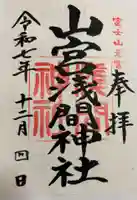 富士山元宮
奉拝
山宮浅間神社
浅間神社
令和七年十二月四日